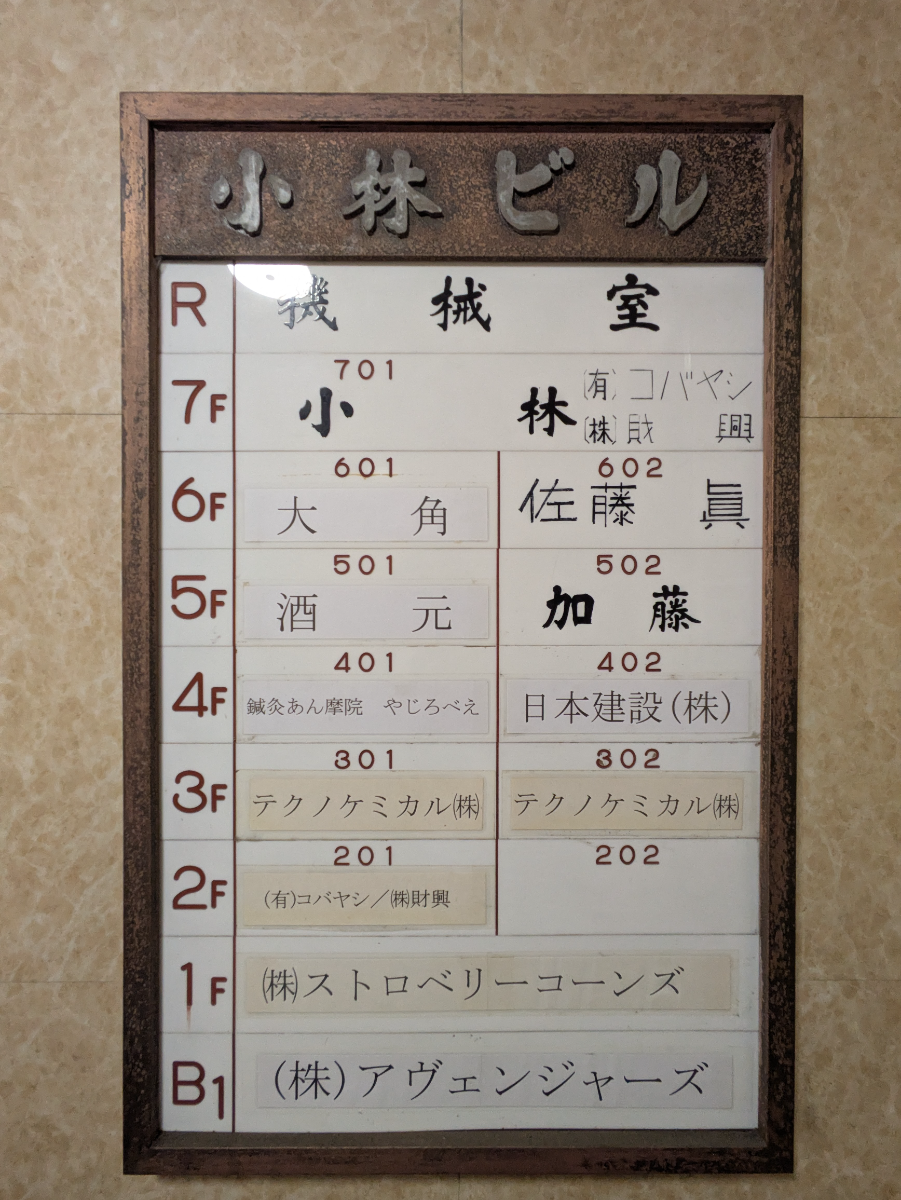 小林ビル
R 機械室
701
7F 小林 (有)コバヤシ
(株)財興
601 602
6F 大角 佐藤眞
501 502
5F 酒元 加藤
401 402
4F 鍼灸あん摩院 やじろべえ 日本建設(株)
301 302
3F テクノケミカル㈱ テクノケミカル㈱
201 202
2F (有)コバヤシ／㈱財興
1F ㈱ストロベリーコーンズ
B1 (株)アヴェンジャーズ